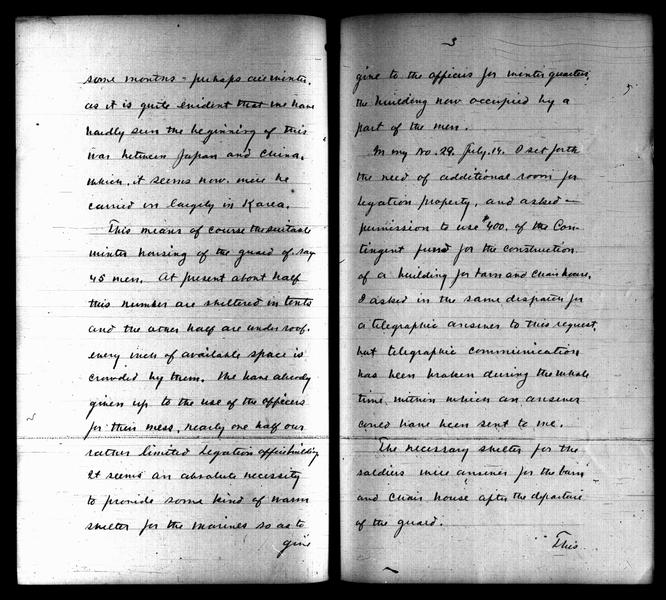 some months - perhaps all winter.
as it is quite evident that we have
hardly seen the beginning of this
war between Japan and China.
which, it seems now, will be
carried on largely in Korea.
This means of course the suitable
winter housing of the guard of say
45 men. At present about half
this number are sheltered in tents
and the other half are under roof.
every inch of available space is
crowded by them. We have already
given up to the use of the officers
for their mess, nearly one half our
rather limited Legation office building
It seems an absolute necessity
to provide some kind of warm
shelter for the Marines so as to
give
3
give to the officers for winter quarters,
the building now occupied by a
part of the men.
In my No. 29, July 14. I set forth
the need of additional room for
legation property, and asked -
permission to use $400. of the Con-
tingent fund for the construction
of a building for barn and chair house.
I asked in the same dispatch for
a telegraphic answer to this request,
but telegraphic communication
has been broken during the whole
time within which an answer
could have been sent to me.
The necessary shelter for the
soldiers will answer for the barn
and chair house after the departure
of the guard.
This